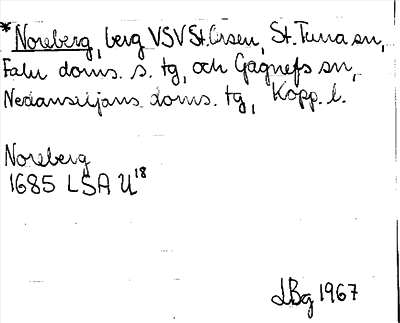 * Noreberg, berg VSV St. Orsen, St. Tuna sn,
Falu doms. s. tg, och Gagnefs sn,
Nedansiljans doms. tg, Kopp. l.
Noreberg
1685 LSA U18
LBg 1967